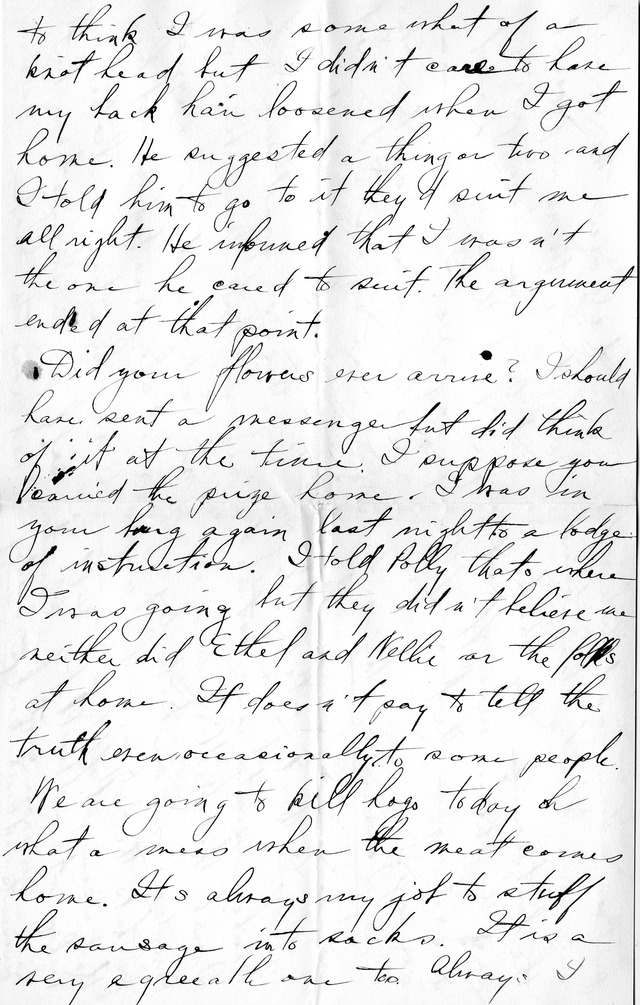 to think I was some what of a
knot head but I didn't care to have
my back hair loosened when I got
home. He suggested a thing or two and
I told him to go to it they'd suit me
all right. He informed that I wasn't
the one he cared to suit. The argument
ended at that point.
Did your flowers ever arrive? I should
have sent a messenger but did think
of it at the time. I suppose you
carried the prize home. I was in
your burg again last night to a lodge
of instruction. I told Polly thats where
I was going but they didn't believe me
neither did Ethel and Nellie or the folks
at home. It doesn't pay to tell the
truth even occasionally to some people.
We are going to kill hogs today oh
what a mess when the meat comes
home. Its always my job to stuff
the sausage into sacks. It is a
very agreeable one too. Always I